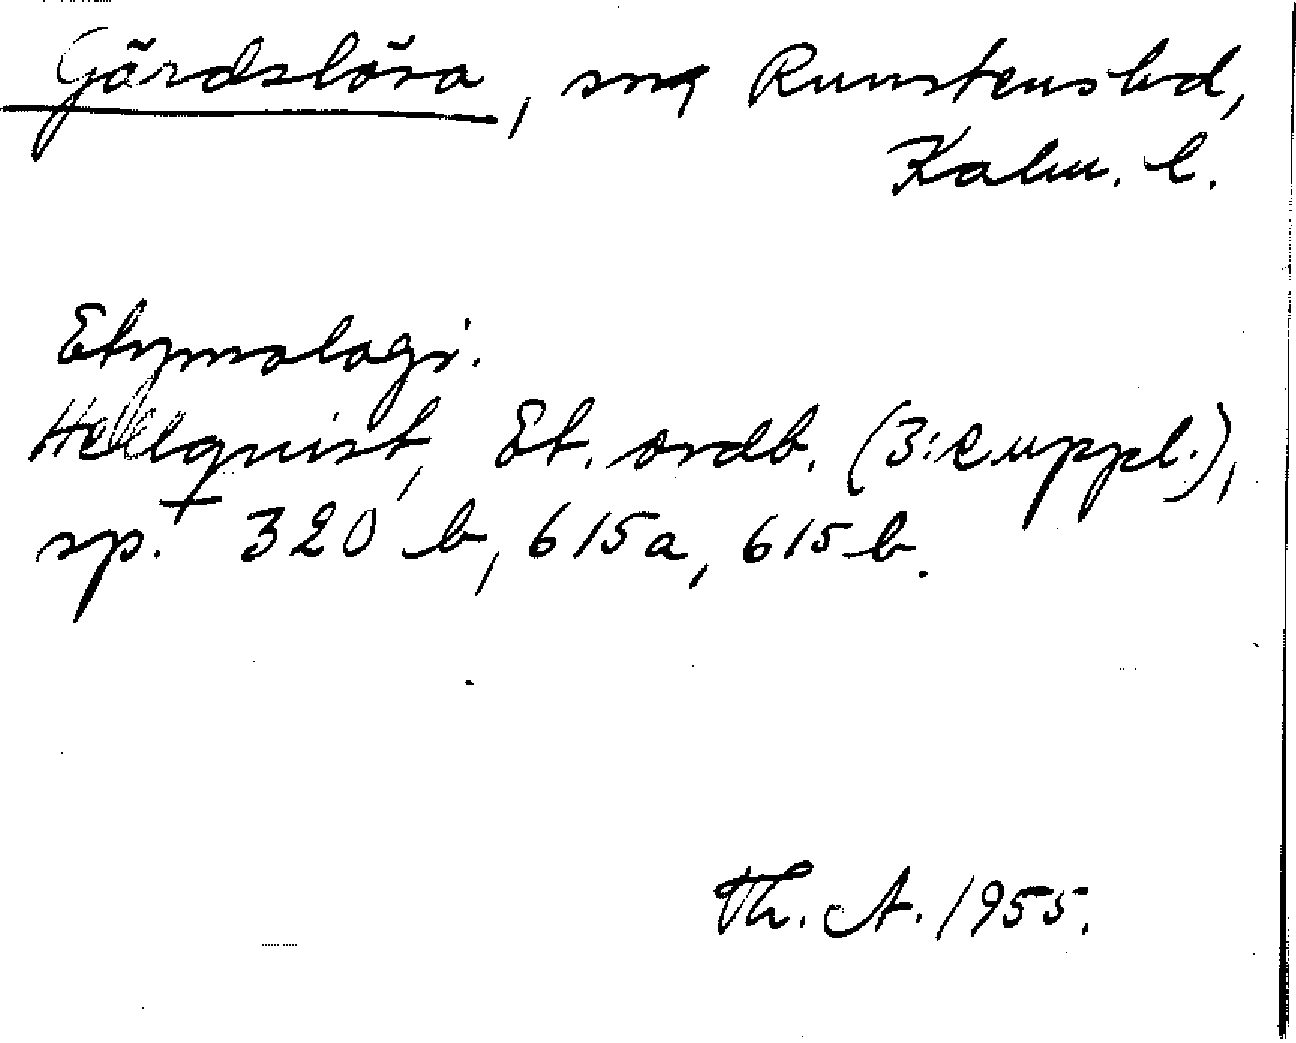 Gärdslösa, sn Runstens hd,
Kalm. l.
Etymologi.
Hellquist, Et. ordb. (3:e uppl.),
sp. 320 b, 615a, 615 b.
Th. A. 1955.